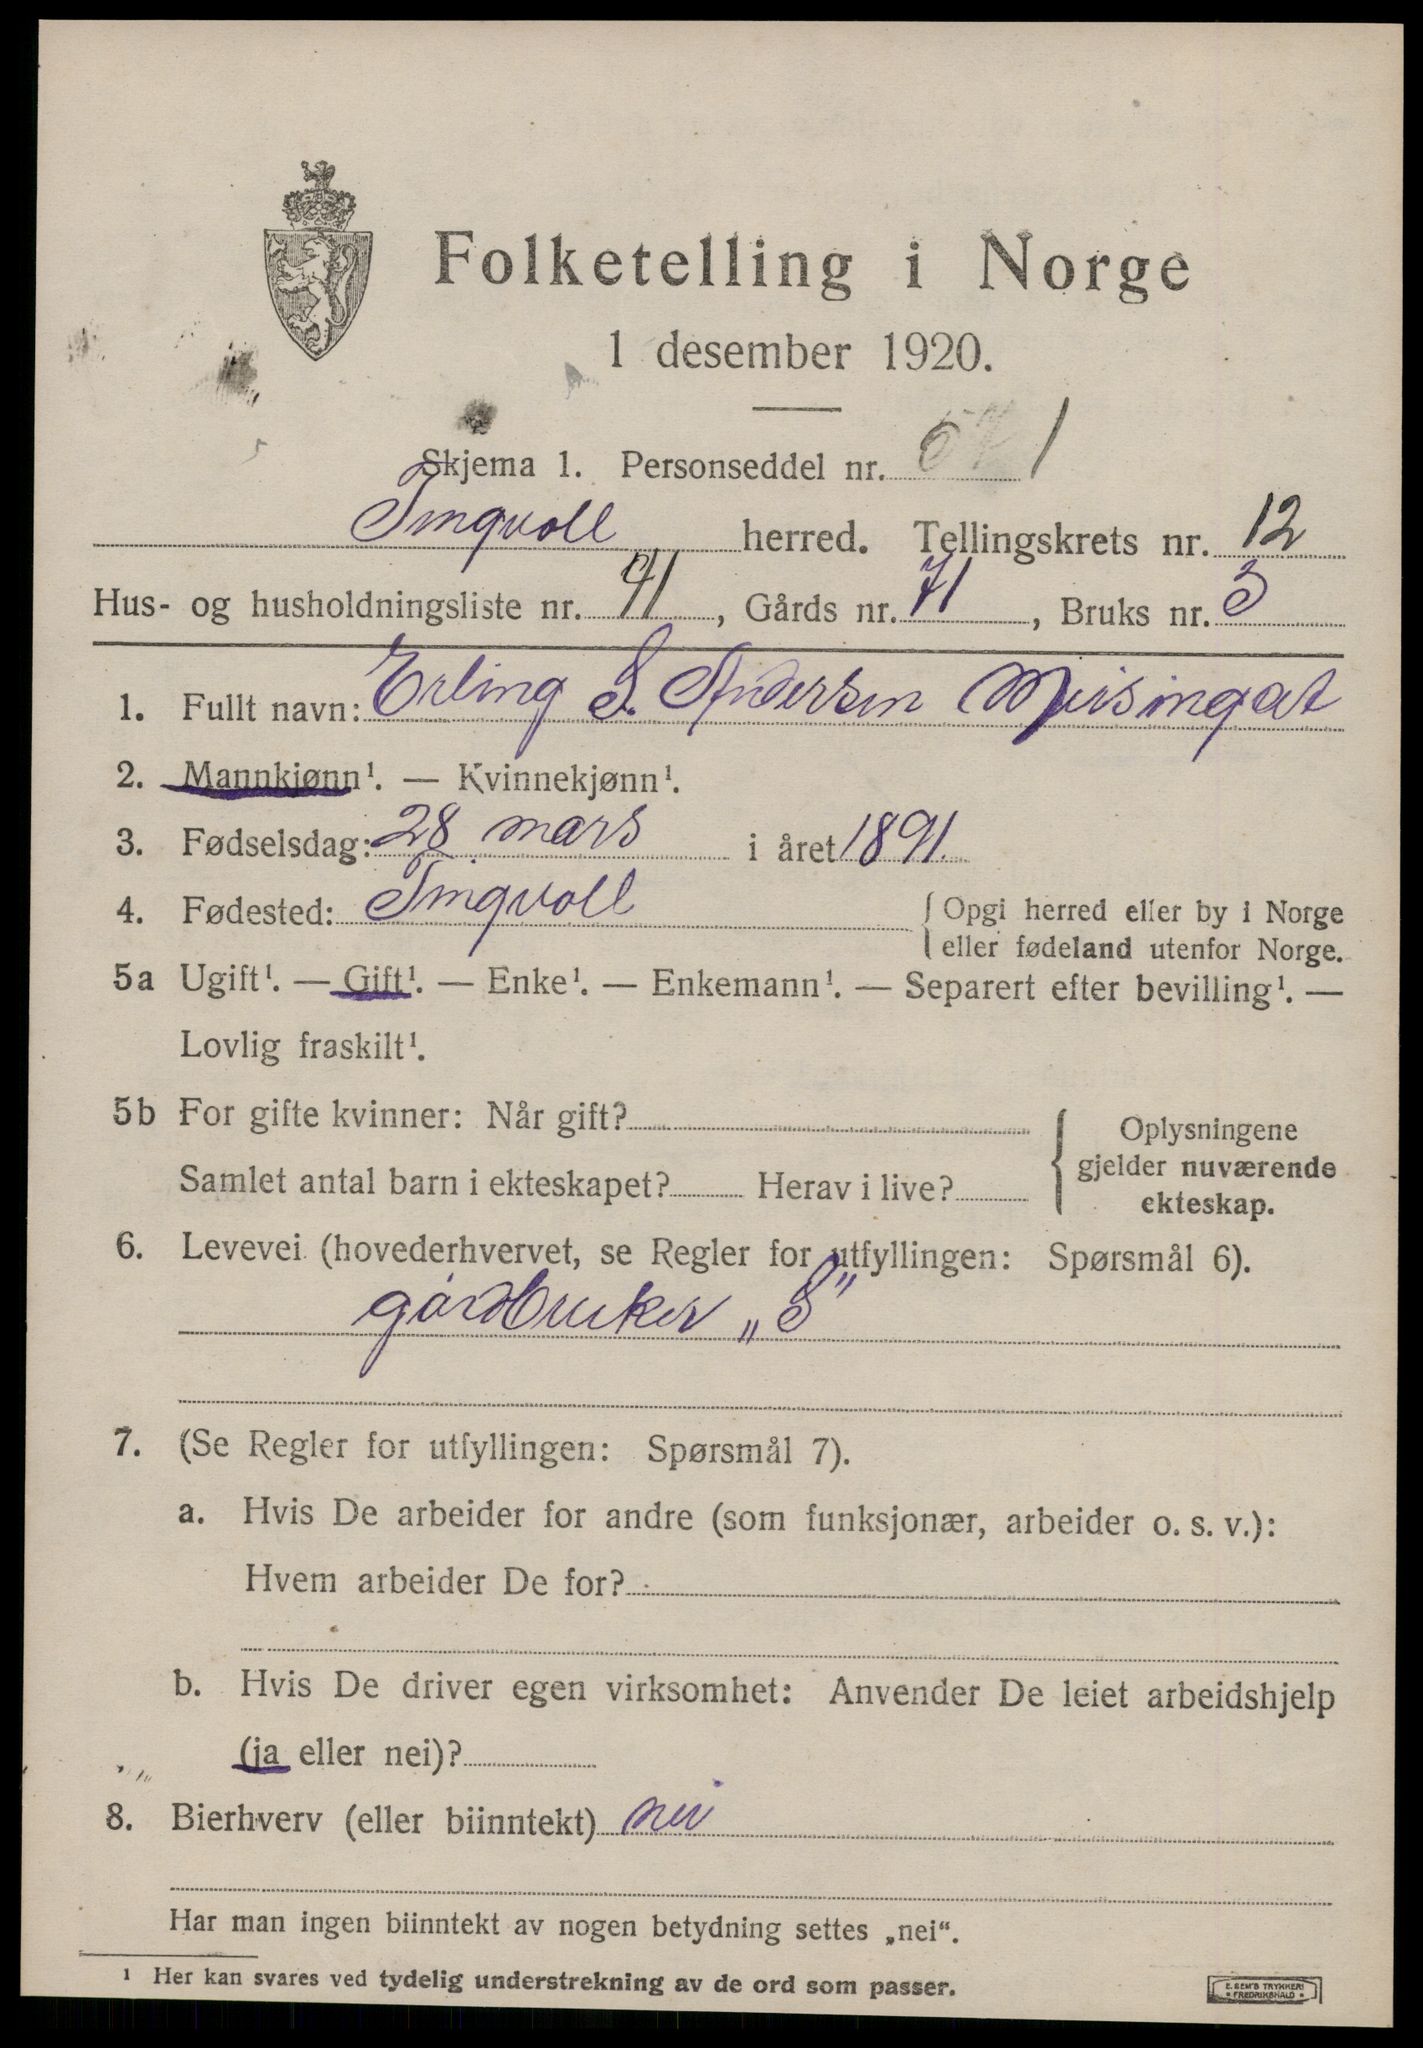 Folketelling i Norge
1 desember 1920.
Skjema 1. Personseddel nr. 1
Tingvoll herred. Tellingskrets nr. 12
Hus- og husholdningsliste nr. 41, Gårds nr. 71, Bruks nr. 3
1. Fullt navn: Erling S. Andersen Meisingset
2. Mannkjønn¹. — Kvinnekjønn¹.
3. Fødselsdag: 28 mars i året 1891.
4. Fødested: Tingvoll { Opgi herred eller by i Norge
eller fødeland utenfor Norge.
5a Ugift¹. — Gift¹. — Enke¹. — Enkemann¹. — Separert efter bevilling¹. —
Lovlig fraskilt¹.
5b For gifte kvinner: Når gift? { Oplysningene
Samlet antal barn i ekteskapet? Herav i live? gjelder nuværende
ekteskap.
6. Levevei (hovederhvervet, se Regler for utfyllingen: Spørsmål 6).
gårdbruker „S"
7. (Se Regler for utfyllingen: Spørsmål 7).
a. Hvis De arbeider for andre (som funksjonær, arbeider o. s. v.):
Hvem arbeider De for?
b. Hvis De driver egen virksomhet: Anvender De leiet arbeidshjelp
(ja eller nei)?
8. Bierhverv (eller biinntekt) nei
Har man ingen biinntekt av nogen betydning settes „nei“.
¹ Her kan svares ved tydelig understrekning av de ord som passer.
E. SEM'S TRYKKERI
FREDRIKSHALD